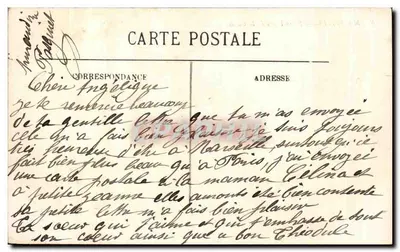 CARTE POSTALE
CORRESPONDANCE
ADRESSE
Chère Angélique
je te remercie beaucoup
de la gentille lettre que tu m'as envoyée
cela m'a fait bien plaisir je suis toujours
très heureuse d'être à Marseille surtout qu'ici
fait bien plus beau qu'à Paris, j'ai envoyé
une carte postale à la maman Célina et
à petite Jeanne elles auront été bien contente
sa petite lettre m'a fait bien plaisir
ta soeur qui t'aime et qui t'embrasse de tout
son coeur ainsi que ce bon Théodule